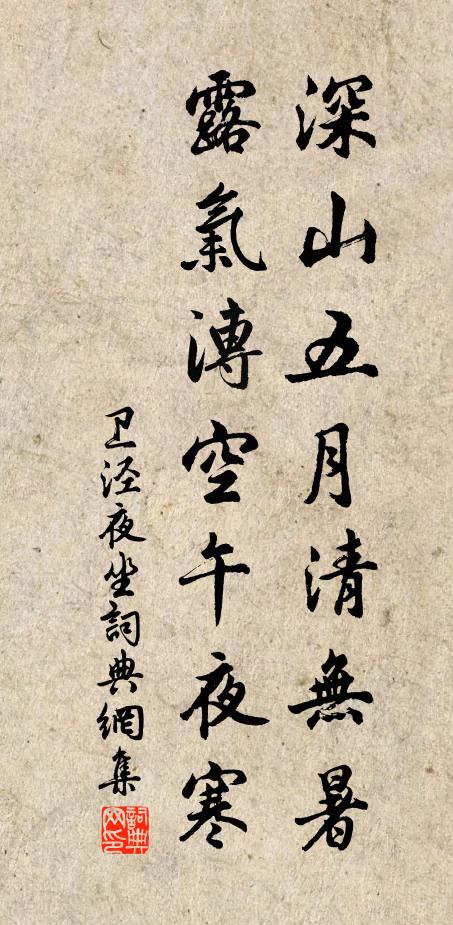 深山五月清無暑
露氣漙空午夜寒
卫泾夜坐詞典網集
詞典網印